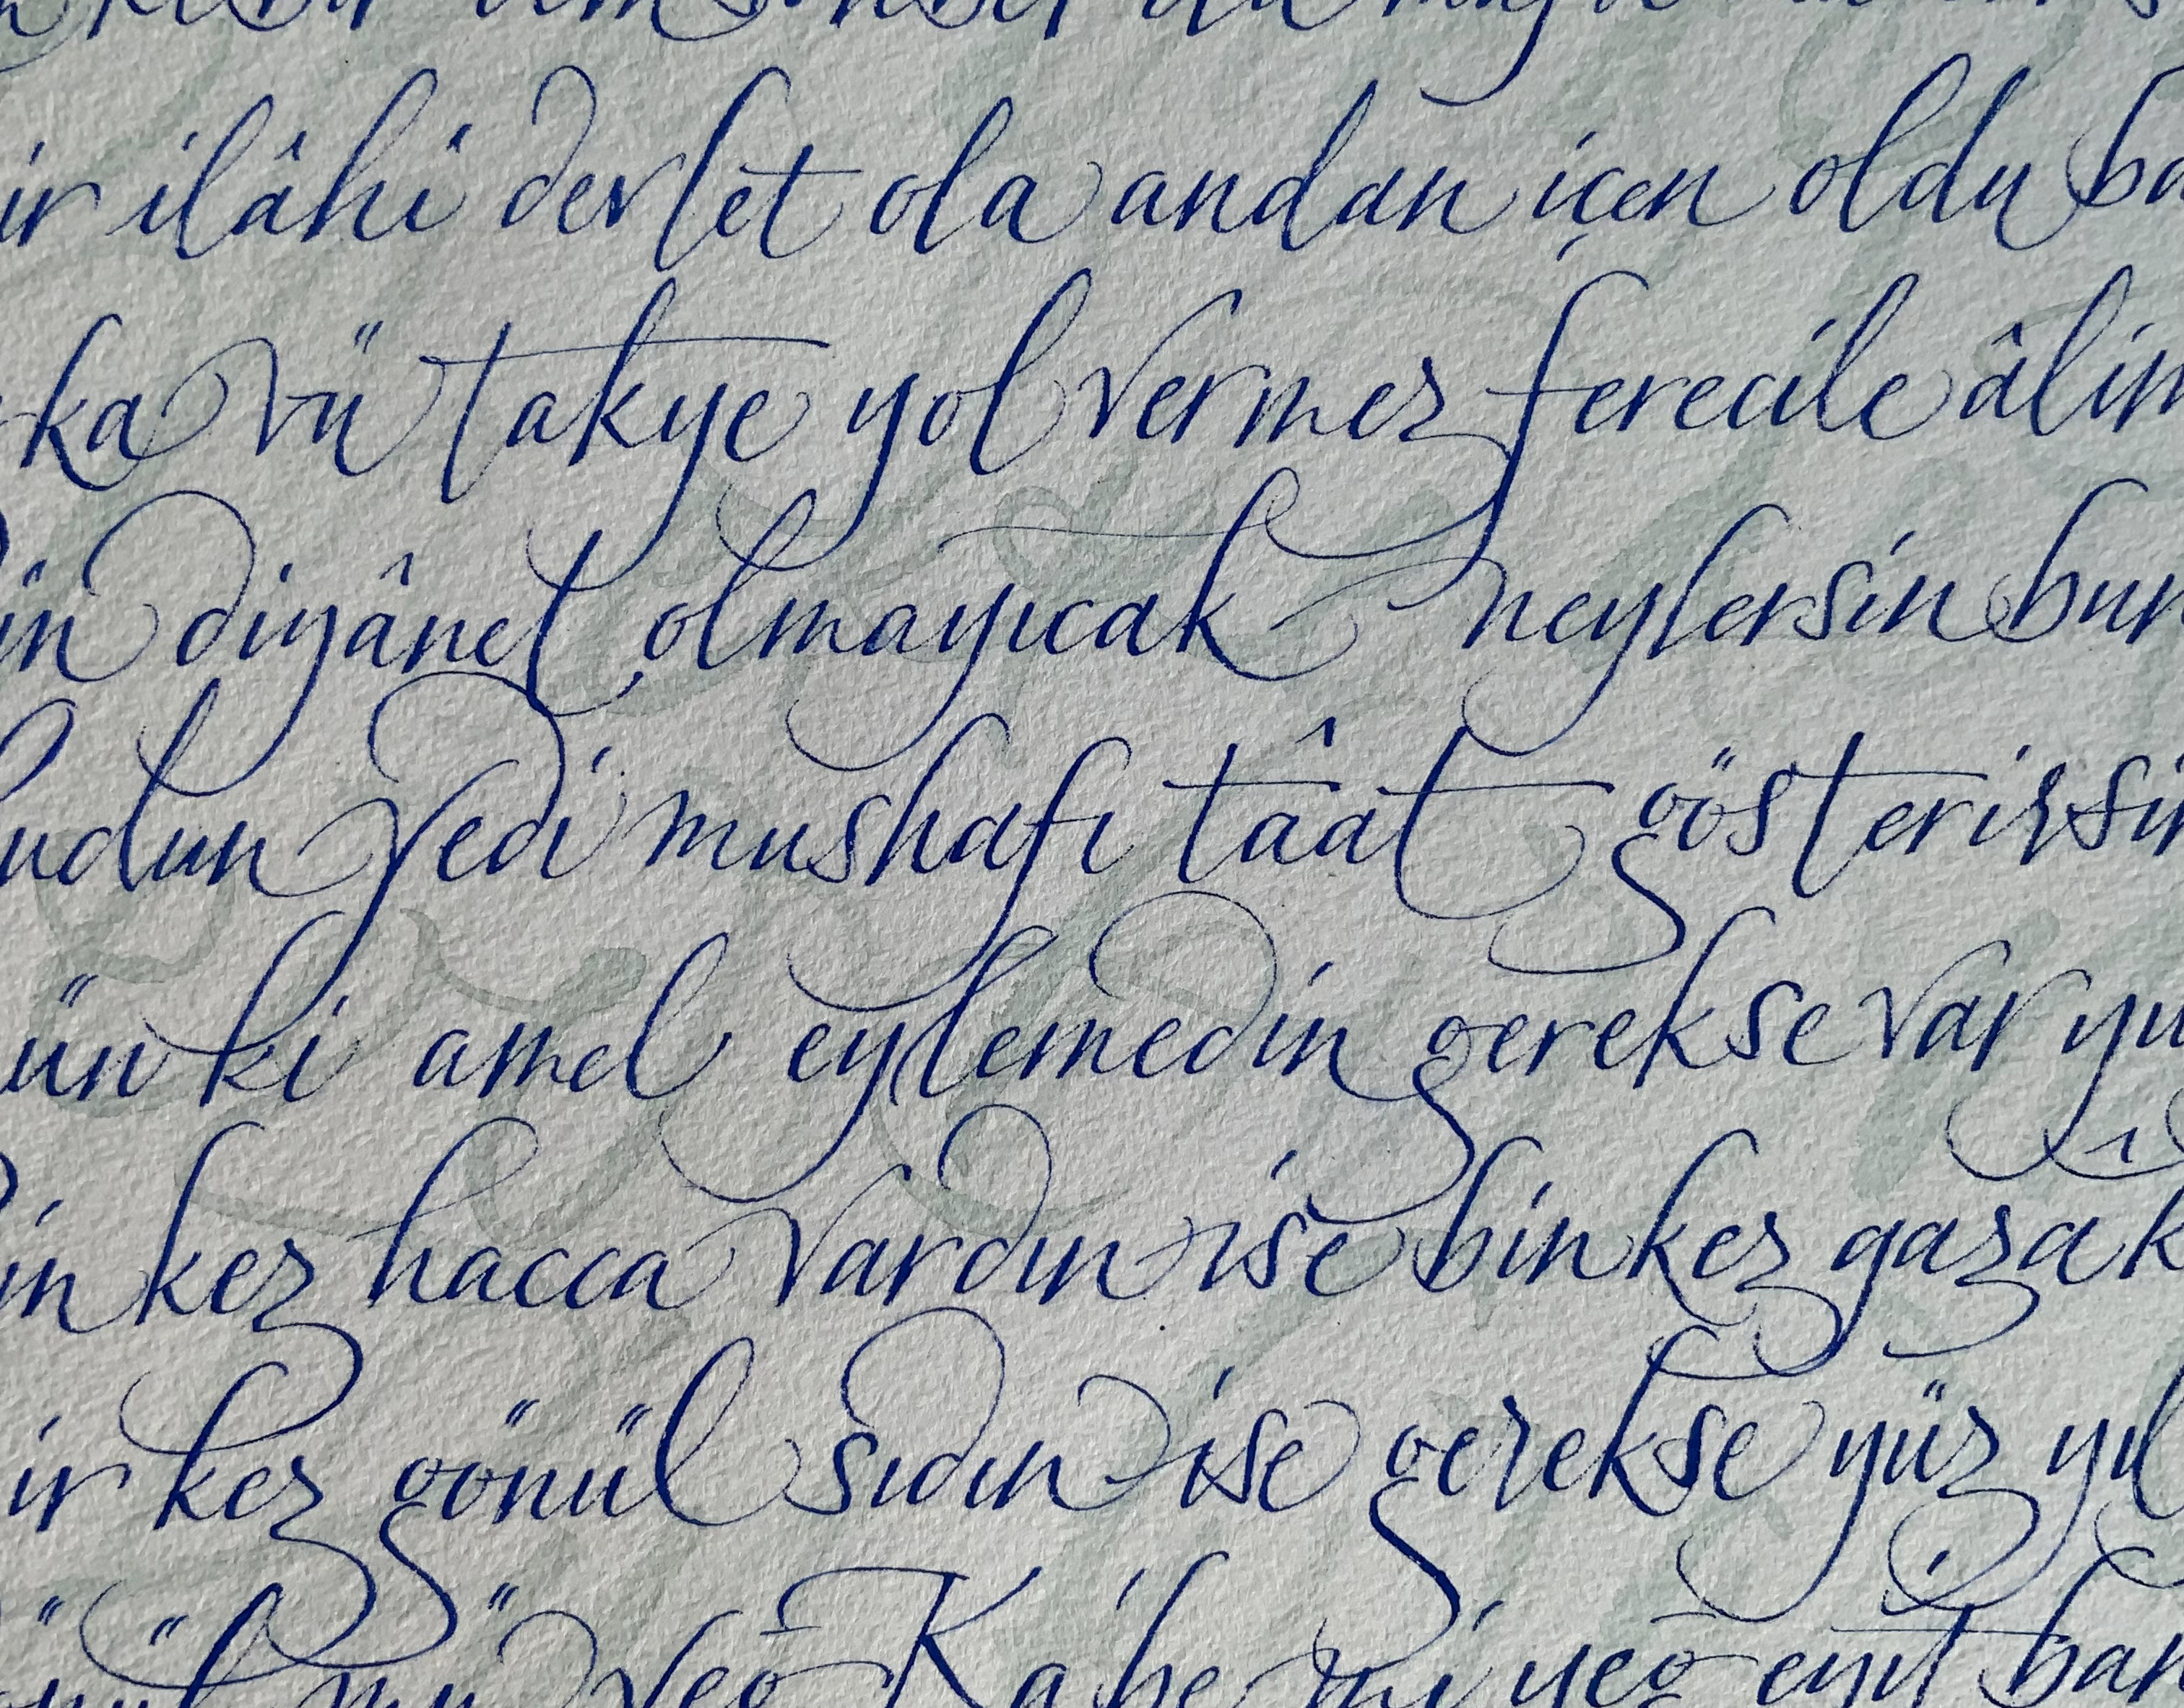 ir ilâhi devlet ola andan içen oldu
ka vü takye yol vermez ferecile âlim
in diyânet olmayıcak neylersin bun
udun yedi mushafı tâat gösterirsin
ün ki amel eylemedin gerekse var yü
in kez hacca vardın ise bin kez gazâ k
ir kez gönül sıdın ise gerekse yüz yıl
mü yeğ Kâbe mi yeğ eyit bana